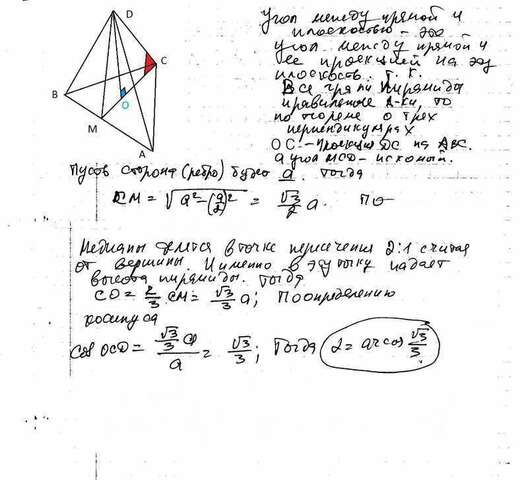 D
C
B
O
M
A
угол между прямой и
плоскостью - это
угол между прямой и
ее проекцией на эту
плоскость. Т. к.
Все грани пирамиды
правильные Δ-ки, то
по теореме о трех
перпендикулярах
OC - проекция DC на ABC.
а угол MCD - искомый.
Пусть сторона (ребро) будет a. Тогда
CM = √(a² - (a/2)²) = √3/2 a. По
Медианы делятся в точке пересечения 2:1 считая
от вершины. Именно в эту точку падает
высота пирамиды. Тогда
CO = 2/3 CM = √3/3 a; По определению
косинуса
Cos OCD = (√3/3 a)/a = √3/3; Тогда α = arcos √3/3